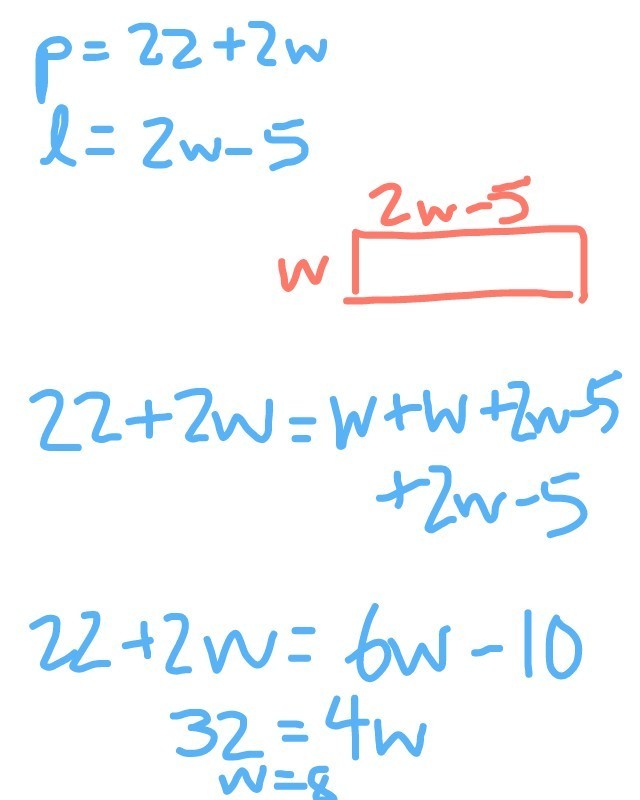 p = 22 + 2w
l = 2w - 5
2w - 5
w
22 + 2w = w + w + 2w - 5
+ 2w - 5
22 + 2w = 6w - 10
32 = 4w
w = 8